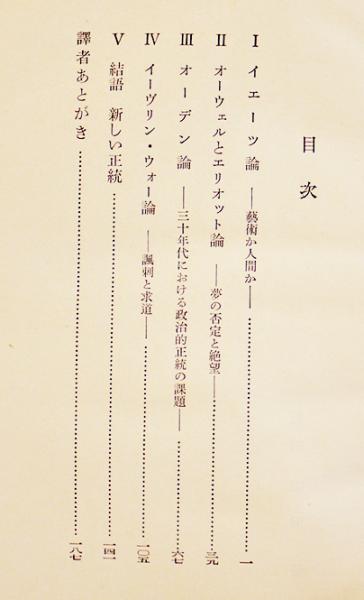 目次
I イェーツ論 ——藝術か人間か——……………………一
II オーウェルとエリオット論 ——夢の否定と絶望——……………………三九
III オーデン論 ——三十年代における政治的正統の課題——……………………六七
IV イーヴリン・ウォー論 ——諷刺と求道——……………………一〇五
V 結語 新しい正統……………………一四一
譯者あとがき……………………一八七